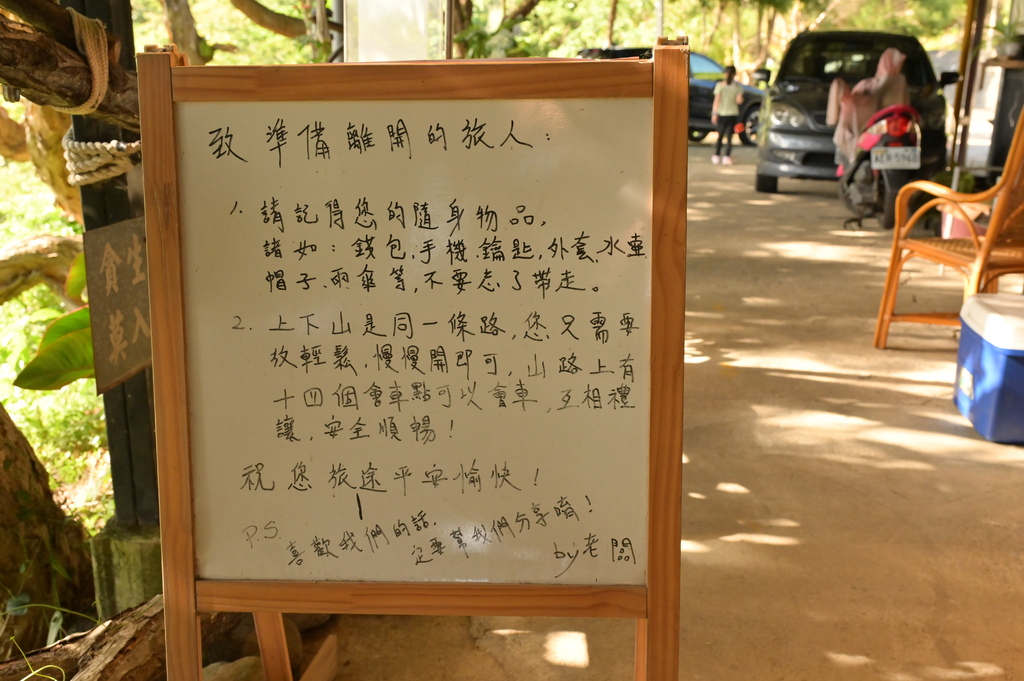 致準備離開的旅人：
1. 請記得您的隨身物品，
諸如：錢包、手機、鑰匙、外套、水壺
帽子、雨傘等，不要忘了帶走。
2. 上下山是同一條路，您只需要
放輕鬆，慢慢開即可，山路上有
十四個會車點可以會車，互相禮
讓，安全順暢！
祝您旅途平安愉快！
P.S.
喜歡我們的話，
一定要幫我們分享唷！
by老闆
貪生
莫入